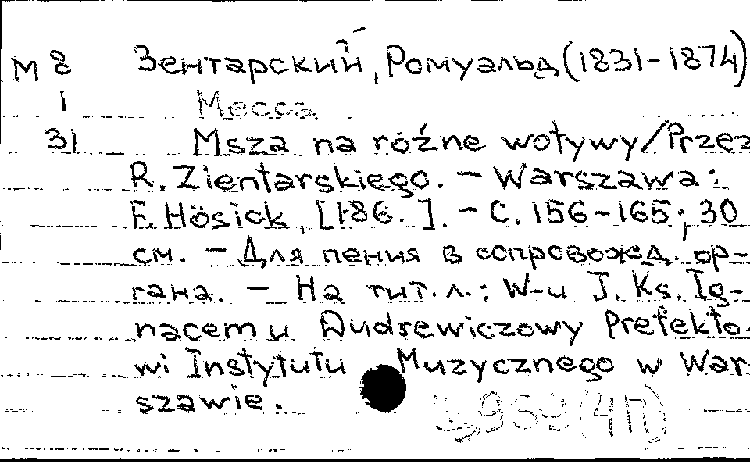 М 8 Зентарский, Ромуальд (1831-1874)
1 Месса
31 Msza na różne wotywy/Przez
R. Zientarskiego. – Warszawa:
F. Hösick, [186. ]. – С. 156-165; 30
см. – Для пения в сопровожд. ор-
гана. – На тит. л.: W-u J. Ks. Ig-
nacemu Dudrewiczowy Prefekto-
wi Instytutu Muzycznego w War
szawie.